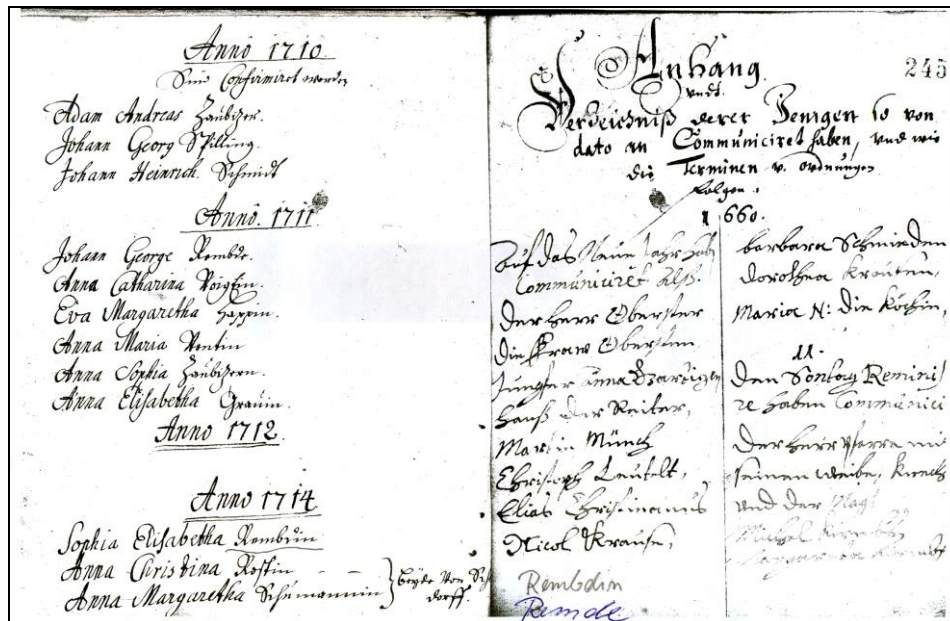 Anno 1710.
Sind Confirmiret worden
Adam Andreas Zäubitzer.
Johann Georg Spilling.
Johann Heinrich Schmidt
Anno. 1711
Johann George Rembde.
Anna Catharina Voigtin.
Eva Margaretha Happin.
Anna Maria
Anna Sophia Zäubitzern.
Anna Elisabetha Grauin.
Anno 1712.
Anno 1714
Sophia Elisabetha Rembdin
Anna Christina Rostin
Anna Margaretha Schümannin } beyde von
dorff.
245
Anhang
undt
Verzeichniß derer Jenigen so von
dato an Communiciret haben, und wie
die Terminen v. ordnungen
folgen.
1660.
Auf das Neue Jahr hab
Communiciret alß.
Der Herr Obrister
die Fraw Obristin
Jungfer Anna
Hanß der Reiter,
Martin Münch
Christoph Leutelt,
Elias Christianus
Nicol Krause,
Rembdin
Remde
barbara Schmieden
dorothea Krautin,
Maria N: die Köchin,
11.
Den Sontag Remini
re haben Communici
Der Herr Pfarre mi
seinen Weibe, Knech
und der Magt
Michel